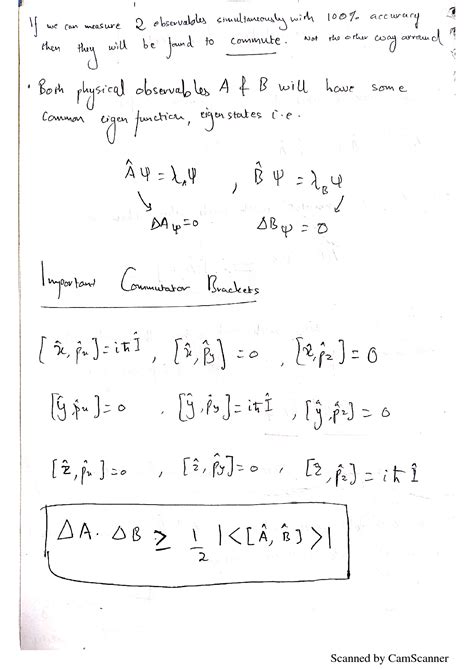 If we can measure 2 observables simultaneously with 100% accuracy
then they will be found to commute. Not the other way around
• Both physical observables A & B will have some
Common eigen function, eigen states i.e.
Âψ = λ_A ψ , B̂ψ = λ_B ψ
↘ ΔA_ψ = 0   ΔB_ψ = 0 ↙
Important Commutator Brackets
[x̂, p̂x] = iħÎ , [x̂, p̂y] = 0 , [x̂, p̂z] = 0
[ŷ, p̂x] = 0 , [ŷ, p̂y] = iħÎ , [ŷ, p̂z] = 0
[ẑ, p̂x] = 0 , [ẑ, p̂y] = 0 , [ẑ, p̂z] = iħ Î
ΔA. ΔB ≥ 1/2 |<[Â, B̂]>|
Scanned by CamScanner